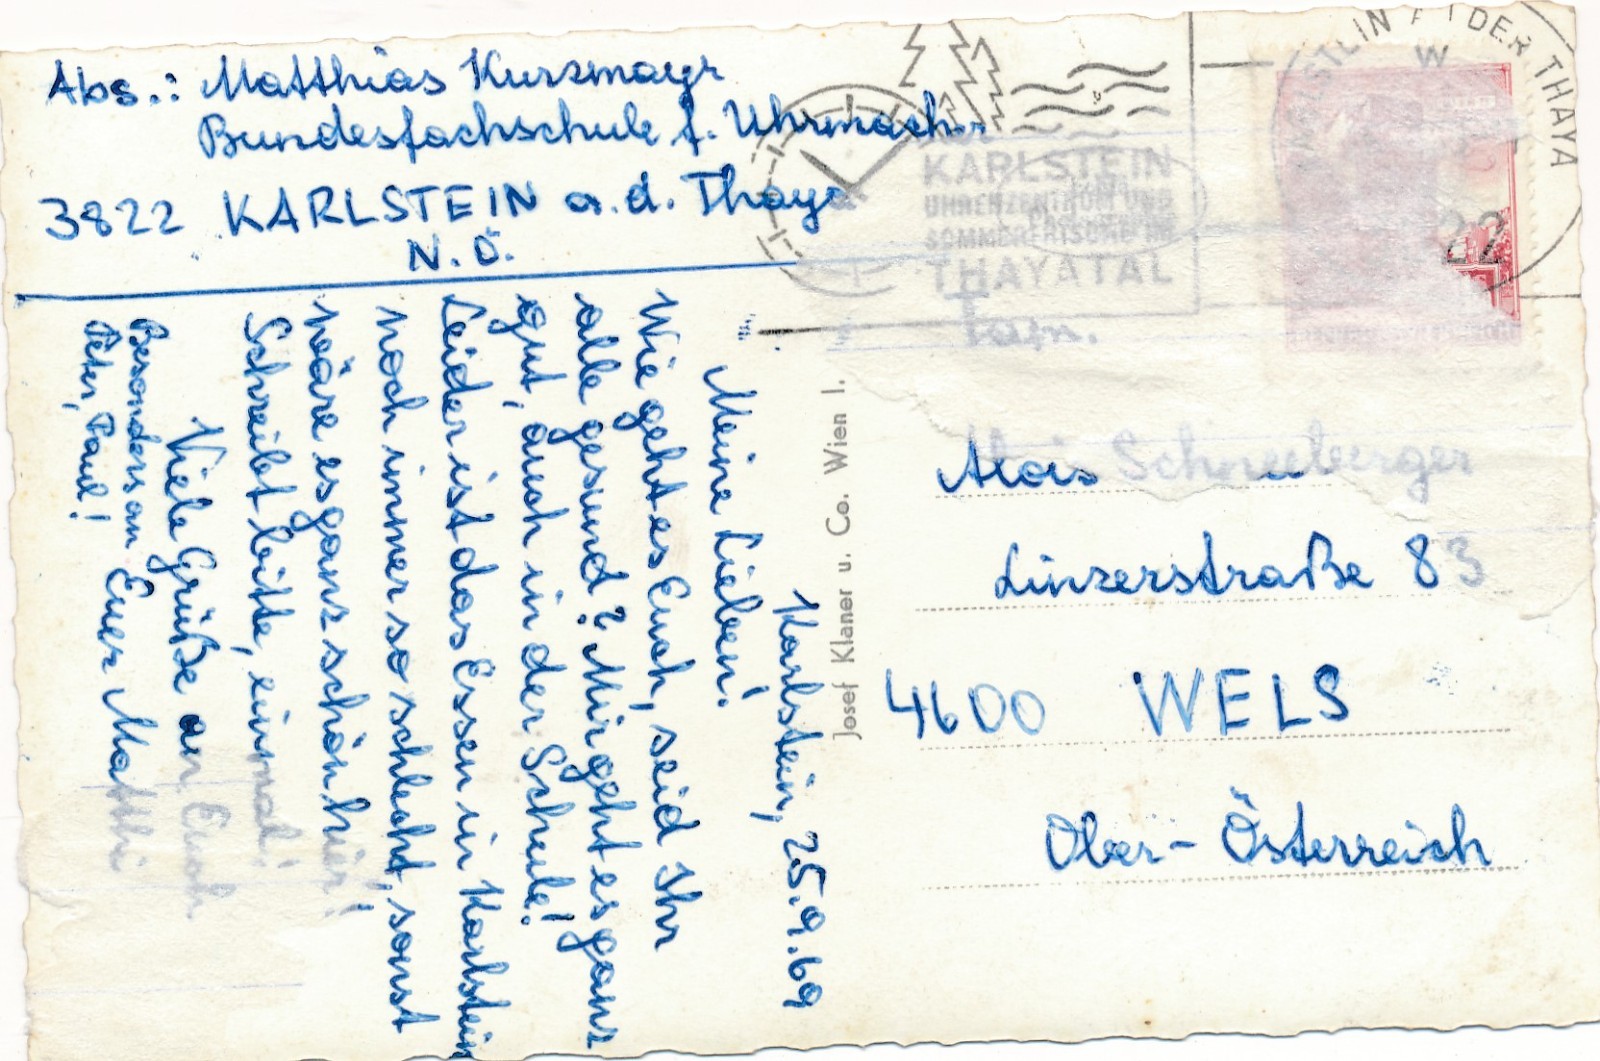 Abs.: Matthias Kurzmayr
Bundesfachschule f. Uhrmacher
3822 KARLSTEIN a.d. Thaya
N.Ö.
Karlstein, 25.9.69
Meine Lieben!
Wie geht es Euch, seid Ihr
alle gesund? Mir geht es ganz
gut, auch in der Schule!
Leider ist das Essen in Karlstein
noch immer so schlecht, sonst
wäre es ganz schön hier!
Schreibt bitte, einmal!
Viele Grüße an Euch
Besonders an Euer Matthi
Peter, Paul!
Josef Klaner u. Co. Wien I.
KARLSTEIN
UHRENZENTRUM UND
SOMMERFRISCHE IM
THAYATAL
DER THAYA
22
Fam.
Alois Schneeberger
Linzerstraße 83
4600 WELS
Ober-Österreich